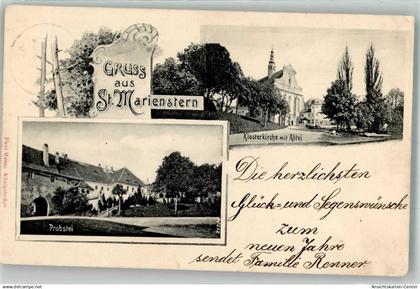 Gruss
aus
St. Marienstern
Klosterkirche mit Abtei
Probstei
Die herzlichsten
Glück- und Segenswünsche
zum
neuen Jahre
sendet Familie Renner